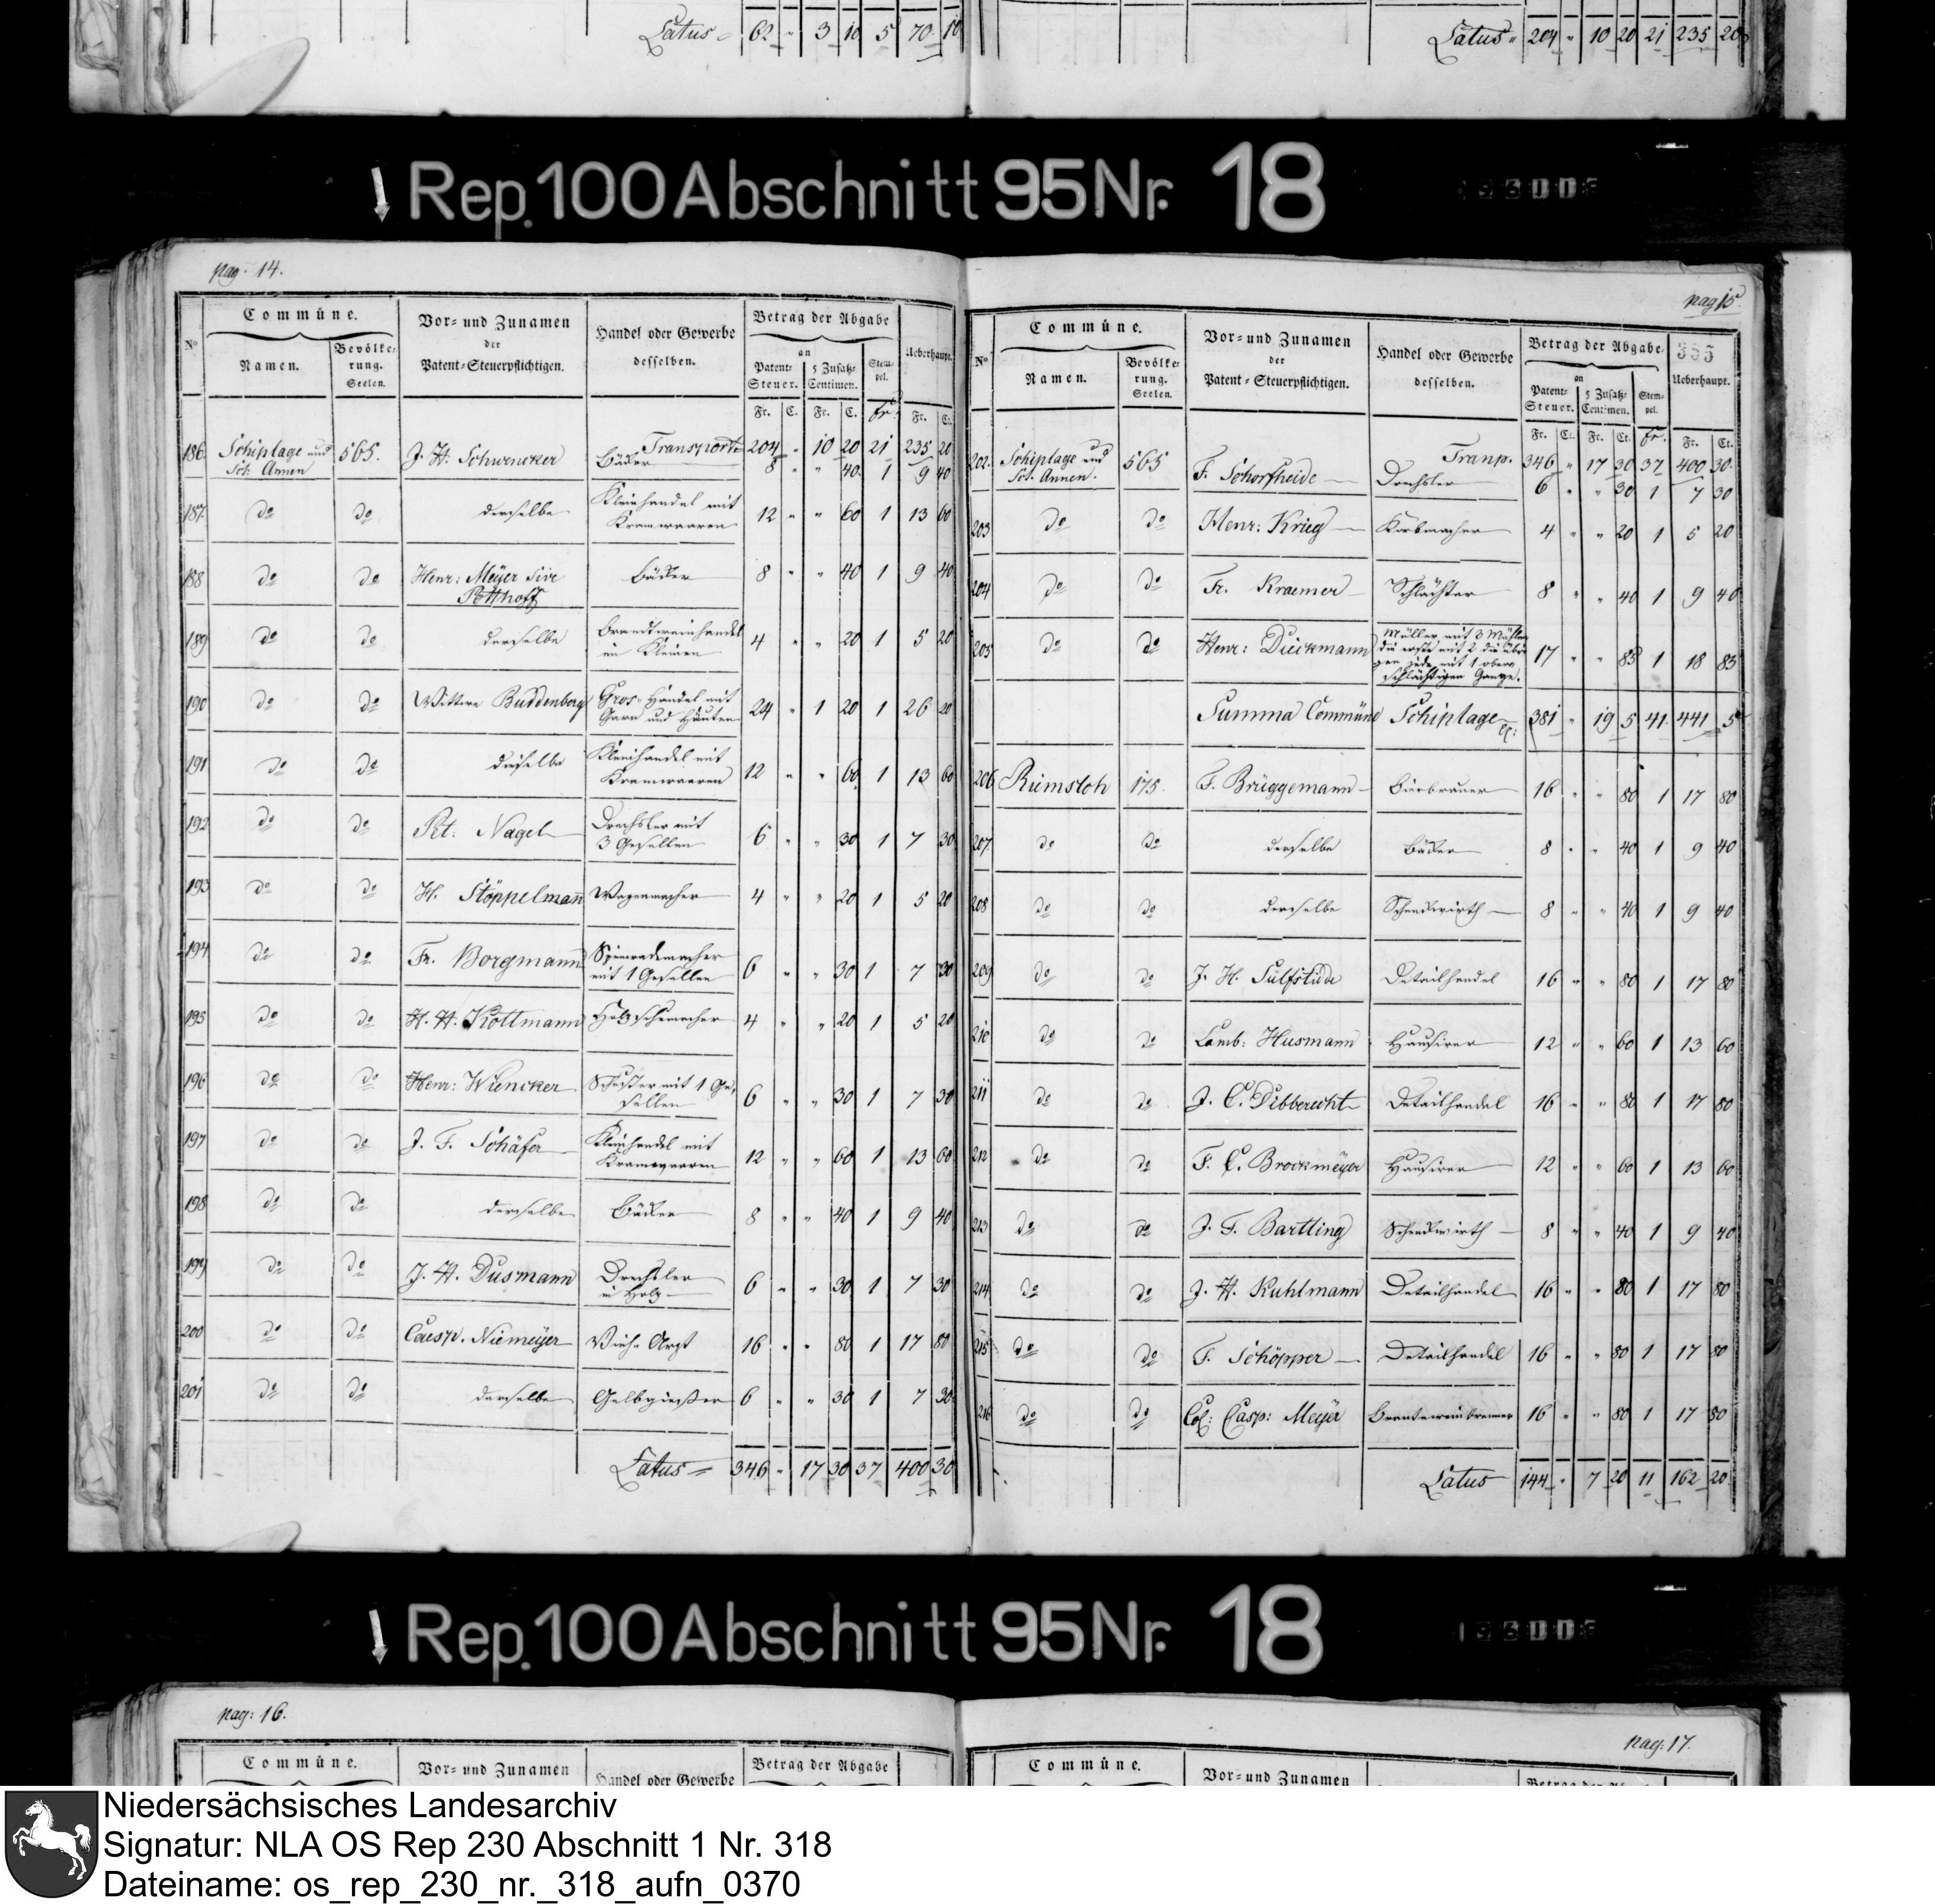 Latus 62 " 3 10 5 70 10
Latus 204 " 10 20 21 235 20
Rep. 100 Abschnitt 95 Nr. 18
pag. 14.
No Commüne. Vor= und Zunamen der Patent=Steuerpflichtigen. Handel oder Gewerbe desselben. Betrag der Abgabe Ueberhaupt.
Namen. Bevölkerung. Seelen. an Patent=Steuer. 5 Zusatz=Centimen. Stempel.
Fr. C. Fr. C. fr. Fr. Ct.
Transport 204 " 10 20 21 235 20
186. Schiplage und St. Annen 565. J. H. Schwencker Bäcker 8 " " 40 1 9 40
187. do do derselbe Kleinhandel mit Kramwaaren 12 " " 60 1 13 60
188 do do Henr: Meÿer sive Potthoff Bäcker 8 " " 40 1 9 40
189 do do derselbe Brandtweinhandel im Kleinen 4 " " 20 1 5 20
190 do do Wittwe Buddenberg Gros=Handel mit Garn und Häuten 24 " 1 20 1 26 20
191 do do dieselbe Kleinhandel mit Kramwaaren 12 " " 60 1 13 60
192 do do Pet: Nagel Drechsler mit 3 Gesellen 6 " " 30 1 7 30
193 do do H. Stöppelmann Wagenmacher 4 " " 20 1 5 20
194 do do Fr. Borgmann Spinrademacher mit 1 Gesellen 6 " " 30 1 7 30
195 do do H. H. Kottmann Holzschumacher 4 " " 20 1 5 20
196 do do Henr: Wiencker Schuster mit 1 Gesellen 6 " " 30 1 7 30
197 do do J. F. Schäfer Kleinhandel mit Kramwaaren 12 " " 60 1 13 60
198 do do derselbe Bäcker 8 " " 40 1 9 40
199 do do J. H. Dusmann Drechsler in Holz 6 " " 30 1 7 30
200 do do Casp. Niemeÿer Vieh=Arzt 16 " " 80 1 17 80
201 do do derselbe Gelbgiesser 6 " " 30 1 7 30
Latus 346 " 17 30 37 400 30
pag 15.
353
No Commüne. Vor= und Zunamen der Patent=Steuerpflichtigen. Handel oder Gewerbe desselben. Betrag der Abgabe Ueberhaupt.
Namen. Bevölkerung. Seelen. an Patent=Steuer. 5 Zusatz=Centimen. Stempel.
Fr. Ct. Fr. Ct. fr. Fr. Ct.
Tranp. 346 " 17 30 37 400 30
202. Schiplage und St. Annen. 565 F. Schorfheide Drechsler 6 " " 30 1 7 30
203 do do Henr: Krieg Korbmacher 4 " " 20 1 5 20
204 do do Fr. Kraemer Schlächter 8 " " 40 1 9 40
205 do do Henr: Dieckmann Müller mit 3 Mühlen die erste mit 2 die übrigen jede mit 1 oberschlächtigen Gange. 17 " " 85 1 18 85
Summa Commüne Schiplage 381 " 19 5 41 441 5
206 Riemsloh 175. F. Brüggemann Bierbrauer 16 " " 80 1 17 80
207. do do derselbe Bäcker 8 " " 40 1 9 40
208 do do derselbe Schenkwirth 8 " " 40 1 9 40
209 do do J. H. Sülfstede Detailhandel 16 " " 80 1 17 80
210 do do Lamb: Husmann Hausirer 12 " " 60 1 13 60
211 do do J. C. Dibberecht Detailhandel 16 " " 80 1 17 80
212 do do F. C. Brockmeÿer Hausirer 12 " " 60 1 13 60
213 do do J. F. Bartling Schenkwirth 8 " " 40 1 9 40
214 do do J. H. Kuhlmann Detailhandel 16 " " 80 1 17 80
215 do do F. Schöpper Detailhandel 16 " " 80 1 17 80
216 do do Casp: Meÿer Branteweinbrenner 16 " " 80 1 17 80
Latus 144 " 7 20 11 162 20
Rep. 100 Abschnitt 95 Nr. 18
pag: 16.
Commüne. Vor= und Zunamen Handel oder Gewerbe Betrag der Abgabe
pag: 17.
Commüne. Vor= und Zunamen
Niedersächsisches Landesarchiv
Signatur: NLA OS Rep 230 Abschnitt 1 Nr. 318
Dateiname: os_rep_230_nr._318_aufn_0370